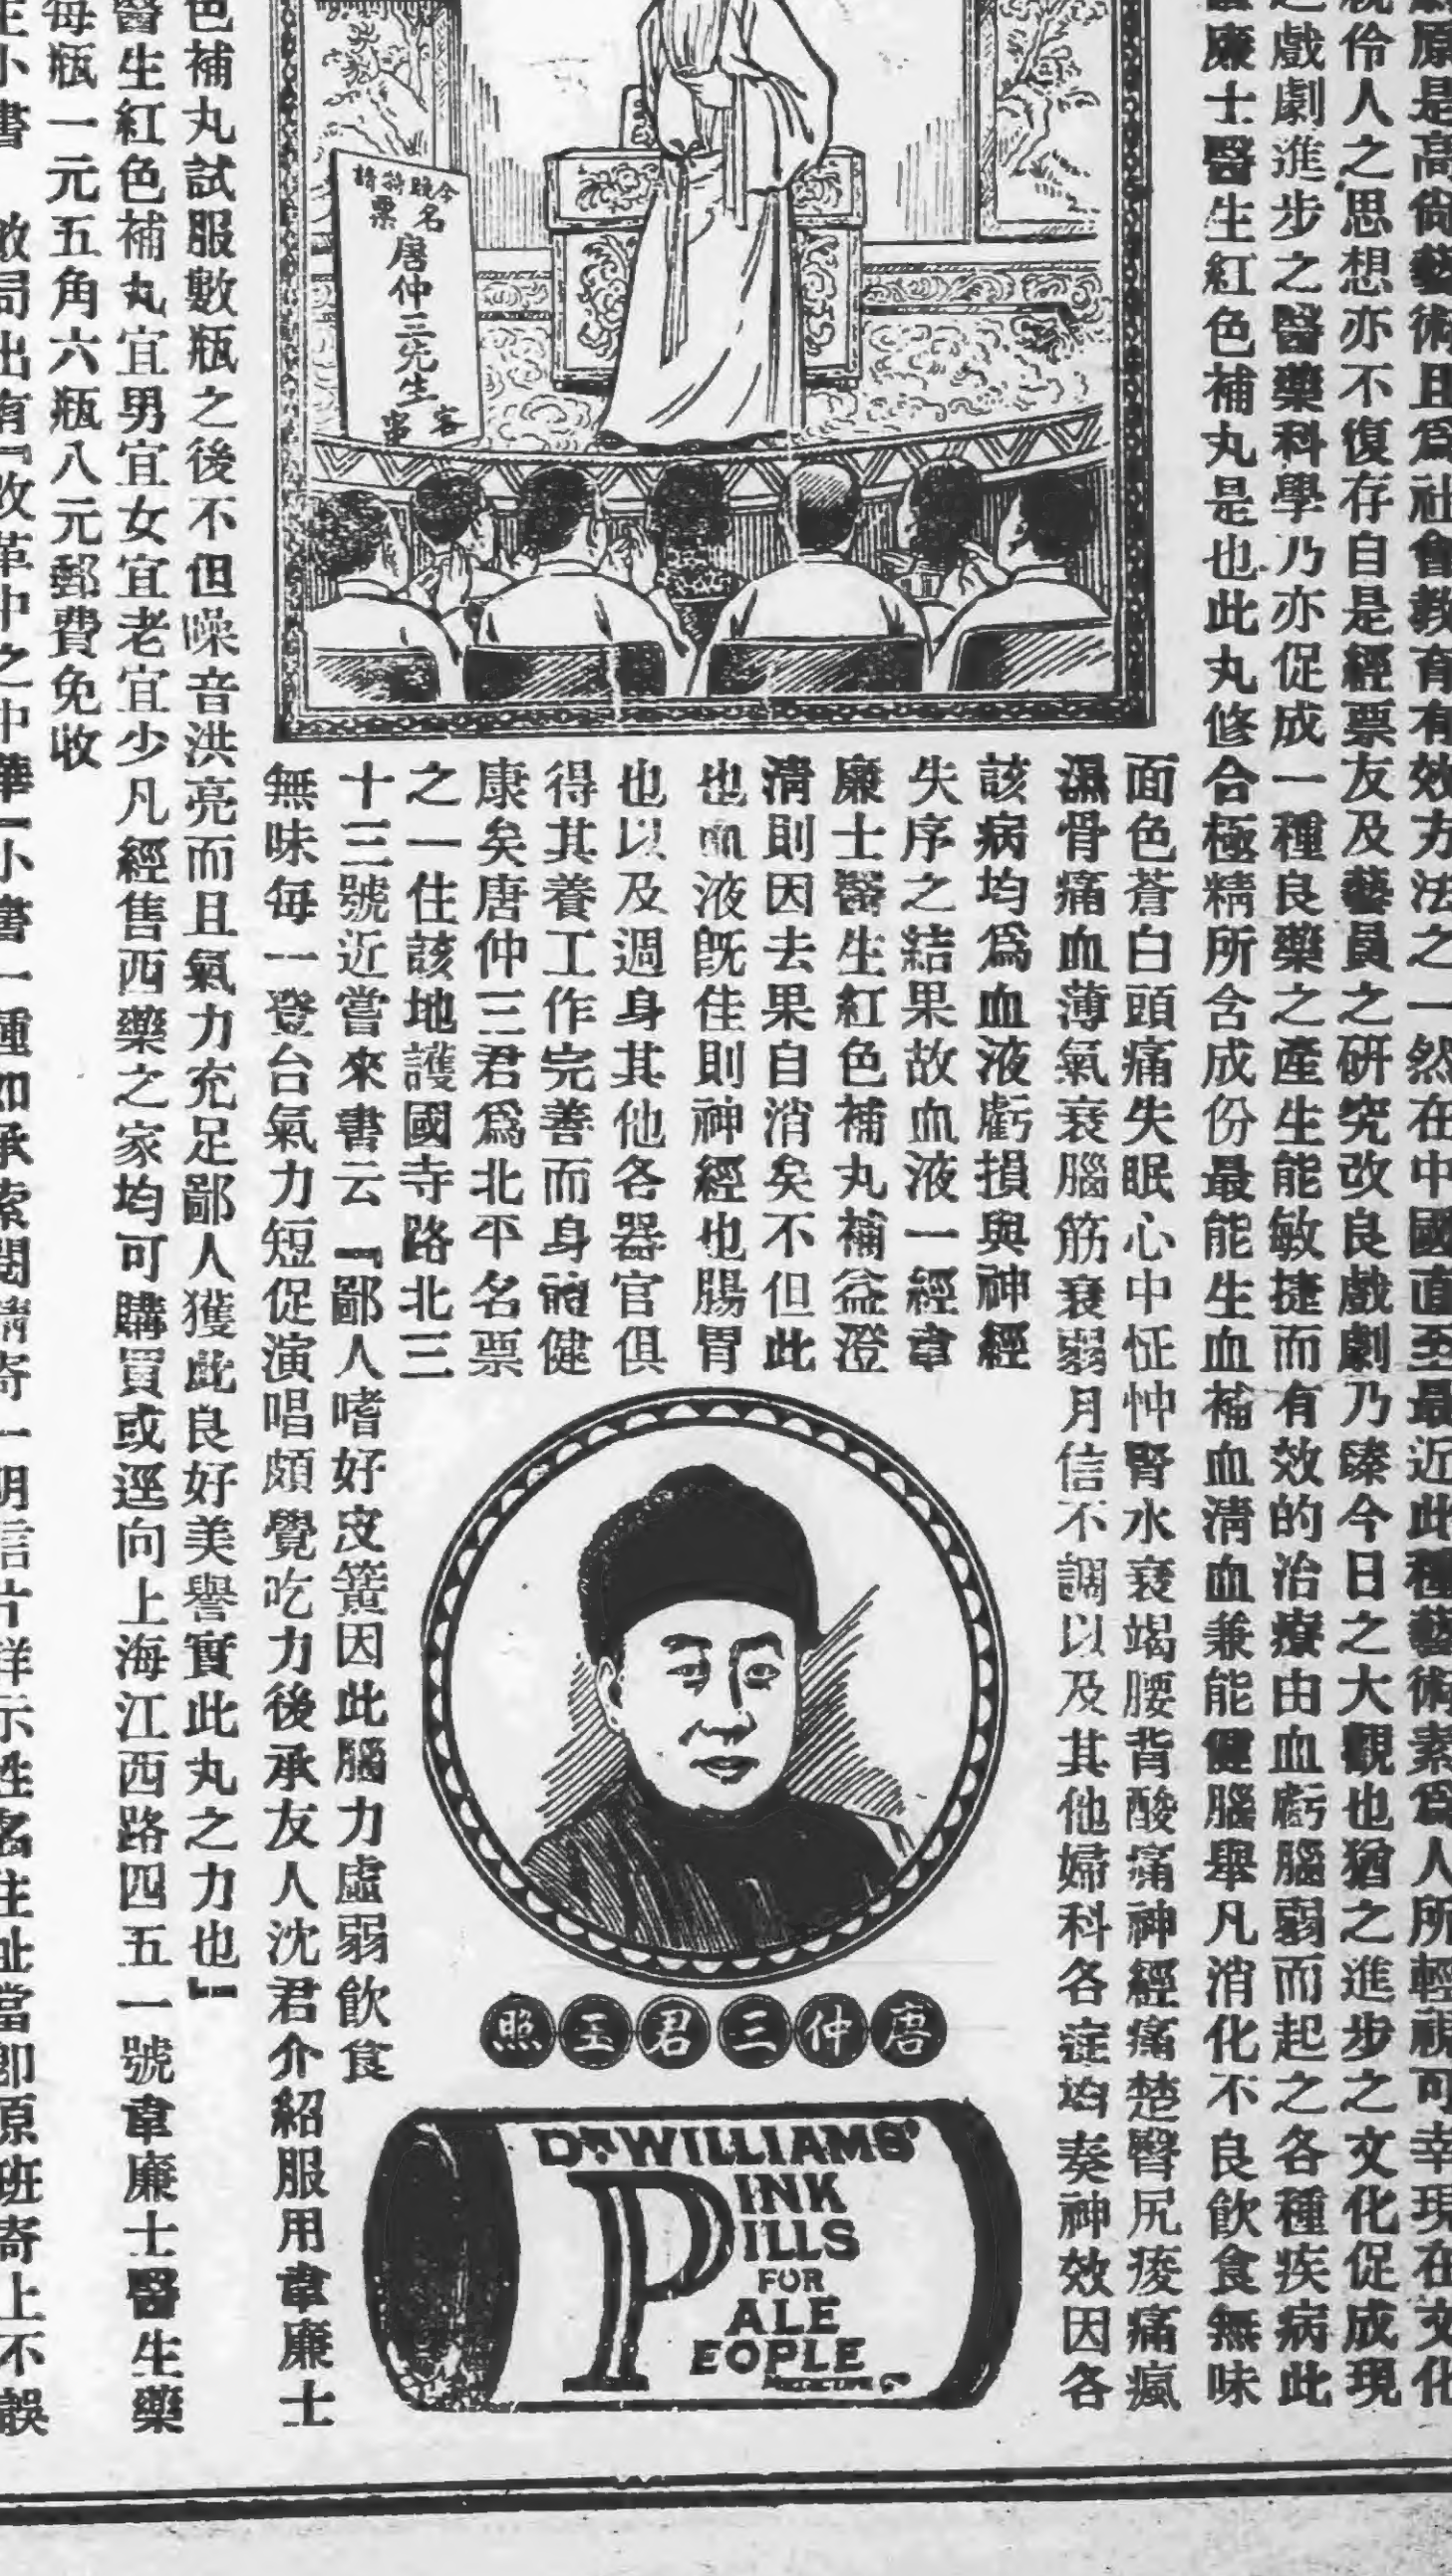 原是高尚藝術且爲社會教育有效方法之一然在中國直至最近此種藝術素爲人所輕視可幸現在文化
伶人之思想亦不復存自是經票友及藝員之研究改良戲劇乃臻今日之大觀也猶之進步之文化促成現
戲劇進步之醫藥科學乃亦促成一種良藥之產生能敏捷而有效的治療由血虧腦弱而起之各種疾病此
廉士醫生紅色補丸是也此丸修合極精所含成份最能生血補血清血兼能健腦舉凡消化不良飲食無味
面色蒼白頭痛失眠心中怔忡腎水衰竭腰背酸痛神經痛楚臀尻痠痛瘋
濕骨痛血薄氣衰腦筋衰弱月信不調以及其他婦科各症均奏神效因各
該病均爲血液虧損與神經
失序之結果故血液一經韋
廉士醫生紅色補丸補益澄
清則因去果自消矣不但此
也血液既佳則神經也腸胃
也以及週身其他各器官俱
得其養工作完善而身體健
康矣唐仲三君爲北平名票
之一住該地護國寺路北三
十三號近嘗來書云『鄙人嗜好皮簧因此腦力虛弱飲食
無味每一登台氣力短促演唱頗覺吃力後承友人沈君介紹服用韋廉士
色補丸試服數瓶之後不但嗓音洪亮而且氣力充足鄙人獲此良好美譽實此丸之力也』
醫生紅色補丸宜男宜女宜老宜少凡經售西藥之家均可購買或逕向上海江西路四五一號韋廉士醫生藥
每瓶一元五角六瓶八元郵費免收
小書 敝局出有『改革中之中華』小書一種如承索閱請寄一明信片詳示姓名住址當即原班寄上不誤
今晚特請
名票
唐仲三先生
客串
唐仲三君玉照
DR. WILLIAMS'
PINK
PILLS
FOR
PALE
PEOPLE